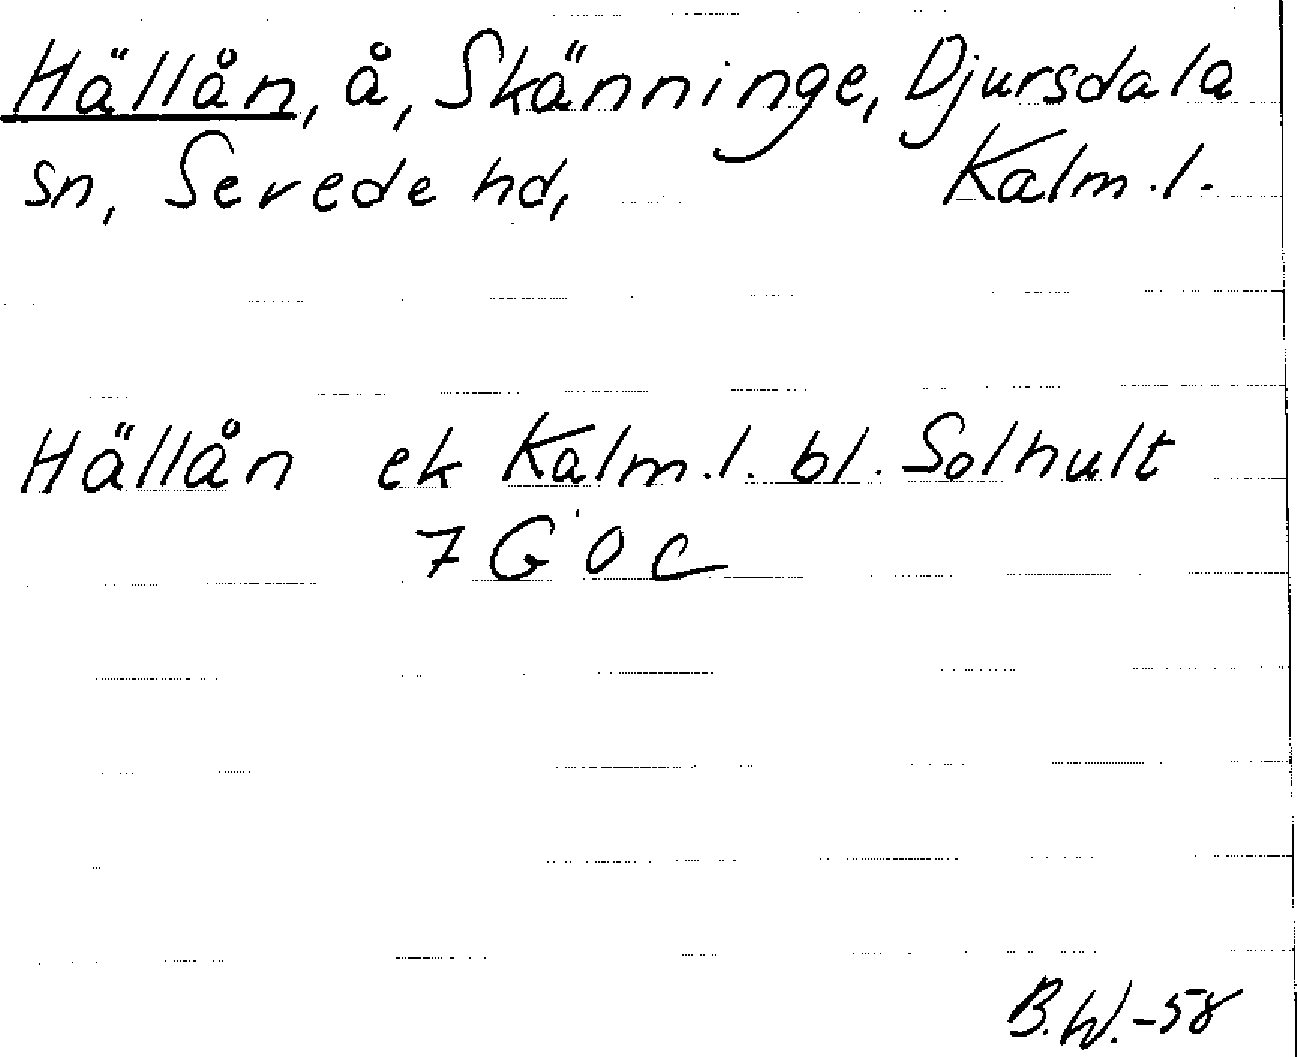 Hällån, å, Skänninge, Djursdala
sn, Sevede hd, Kalm.l.
Hällån ek Kalm.l. bl. Solhult
7 G 0 c
B.W.-58